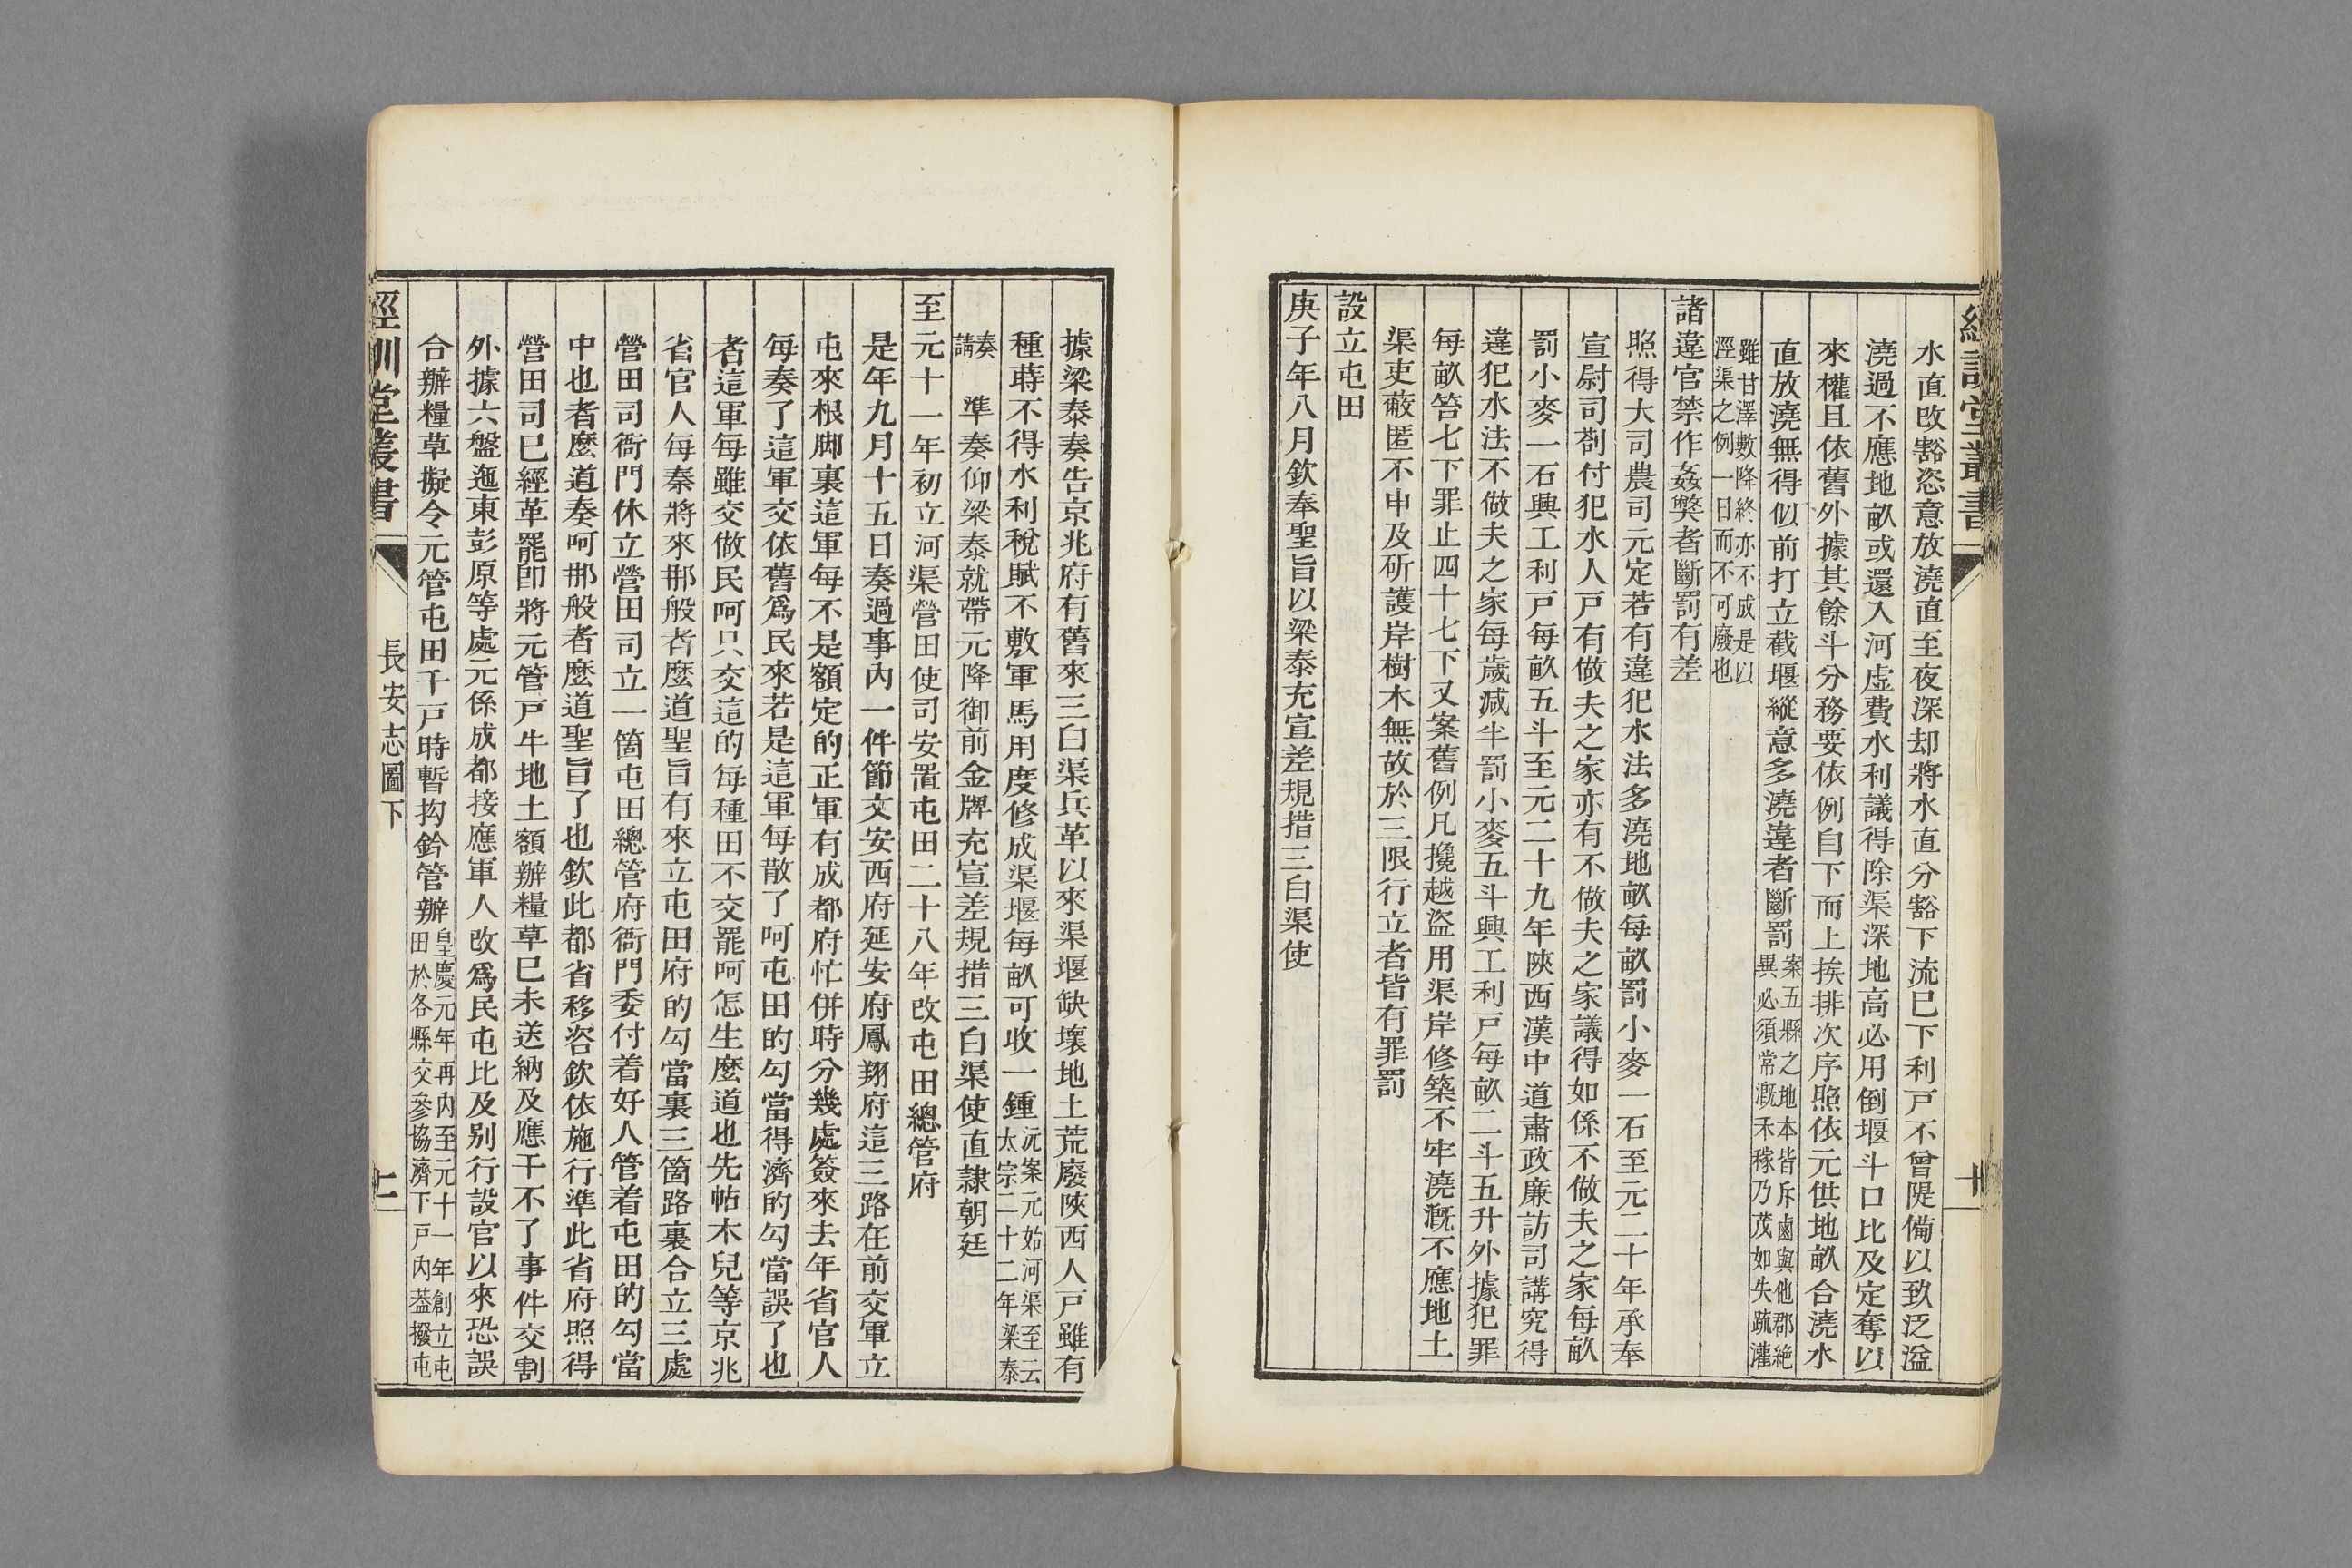 經訓堂叢書
十
水直改豁恣意放澆直至夜深却將水直分豁下流已下利戸不曾隄備以致泛溢
澆過不應地畝或還入河虛費水利議得除渠深地高必用倒堰斗口比及定奪以
來權且依舊外據其餘斗分務要依例自下而上挨排次序照依元供地畝合澆水
直放澆無得似前打立截堰縱意多澆違者斷罰案五縣之地本皆斥鹵與他郡絶
異必須常漑禾稼乃茂如失疏灌
雖甘澤數降終亦不成是以
涇渠之例一日而不可廢也
諸違官禁作姦弊者斷罰有差
照得大司農司元定若有違犯水法多澆地畝每畝罰小麥一石至元二十年承奉
宣尉司劄付犯水人戸有做夫之家亦有不做夫之家議得如係不做夫之家每畝
罰小麥一石興工利戸每畝五斗至元二十九年陝西漢中道肅政廉訪司講究得
違犯水法不做夫之家每歲減半罰小麥五斗興工利戸每畝二斗五升外據犯罪
每畝笞七下罪止四十七下又案舊例凡攙越盜用渠岸修築不牢澆漑不應地土
渠吏蔽匿不申及斫護岸樹木無故於三限行立者皆有罪罰
設立屯田
庚子年八月欽奉聖旨以梁泰充宣差規措三白渠使
據梁泰奏告京兆府有舊來三白渠兵革以來渠堰缺壞地土荒廢陝西人戸雖有
種蒔不得水利稅賦不敷軍馬用度修成渠堰每畝可收一鍾沅案元始河渠至云
太宗二十二年梁泰
奏
請準奏仰梁泰就帶元降御前金牌充宣差規措三白渠使直隷朝廷
至元十一年初立河渠營田使司安置屯田二十八年改屯田總管府
是年九月十五日奏過事內一件節文安西府延安府鳳翔府這三路在前交軍立
屯來根脚裏這軍每不是額定的正軍有成都府忙併時分幾處簽來去年省官人
每奏了這軍交依舊爲民來若是這軍每散了呵屯田的勾當得濟的勾當誤了也
者這軍每雖交做民呵只交這的每種田不交罷呵怎生麽道也先帖木兒等京兆
省官人每奏將來那般者麽道聖旨有來立屯田府的勾當裏三箇路裏合立三處
營田司衙門休立營田司立一箇屯田總管府衙門委付着好人管着屯田的勾當
中也者麽道奏呵那般者麽道聖旨了也欽此都省移咨欽依施行準此省府照得
營田司已經革罷卽將元管戸牛地土額辦糧草已未送納及應干不了事件交割
外據六盤迤東彭原等處元係成都接應軍人改爲民屯比及别行設官以來恐誤
合辦糧草擬令元管屯田千戸時暫拘鈐管辦皇慶元年再內至元十一年創立屯
田於各縣交參協濟下戸內葢撥屯
經訓堂叢書
長安志圖下